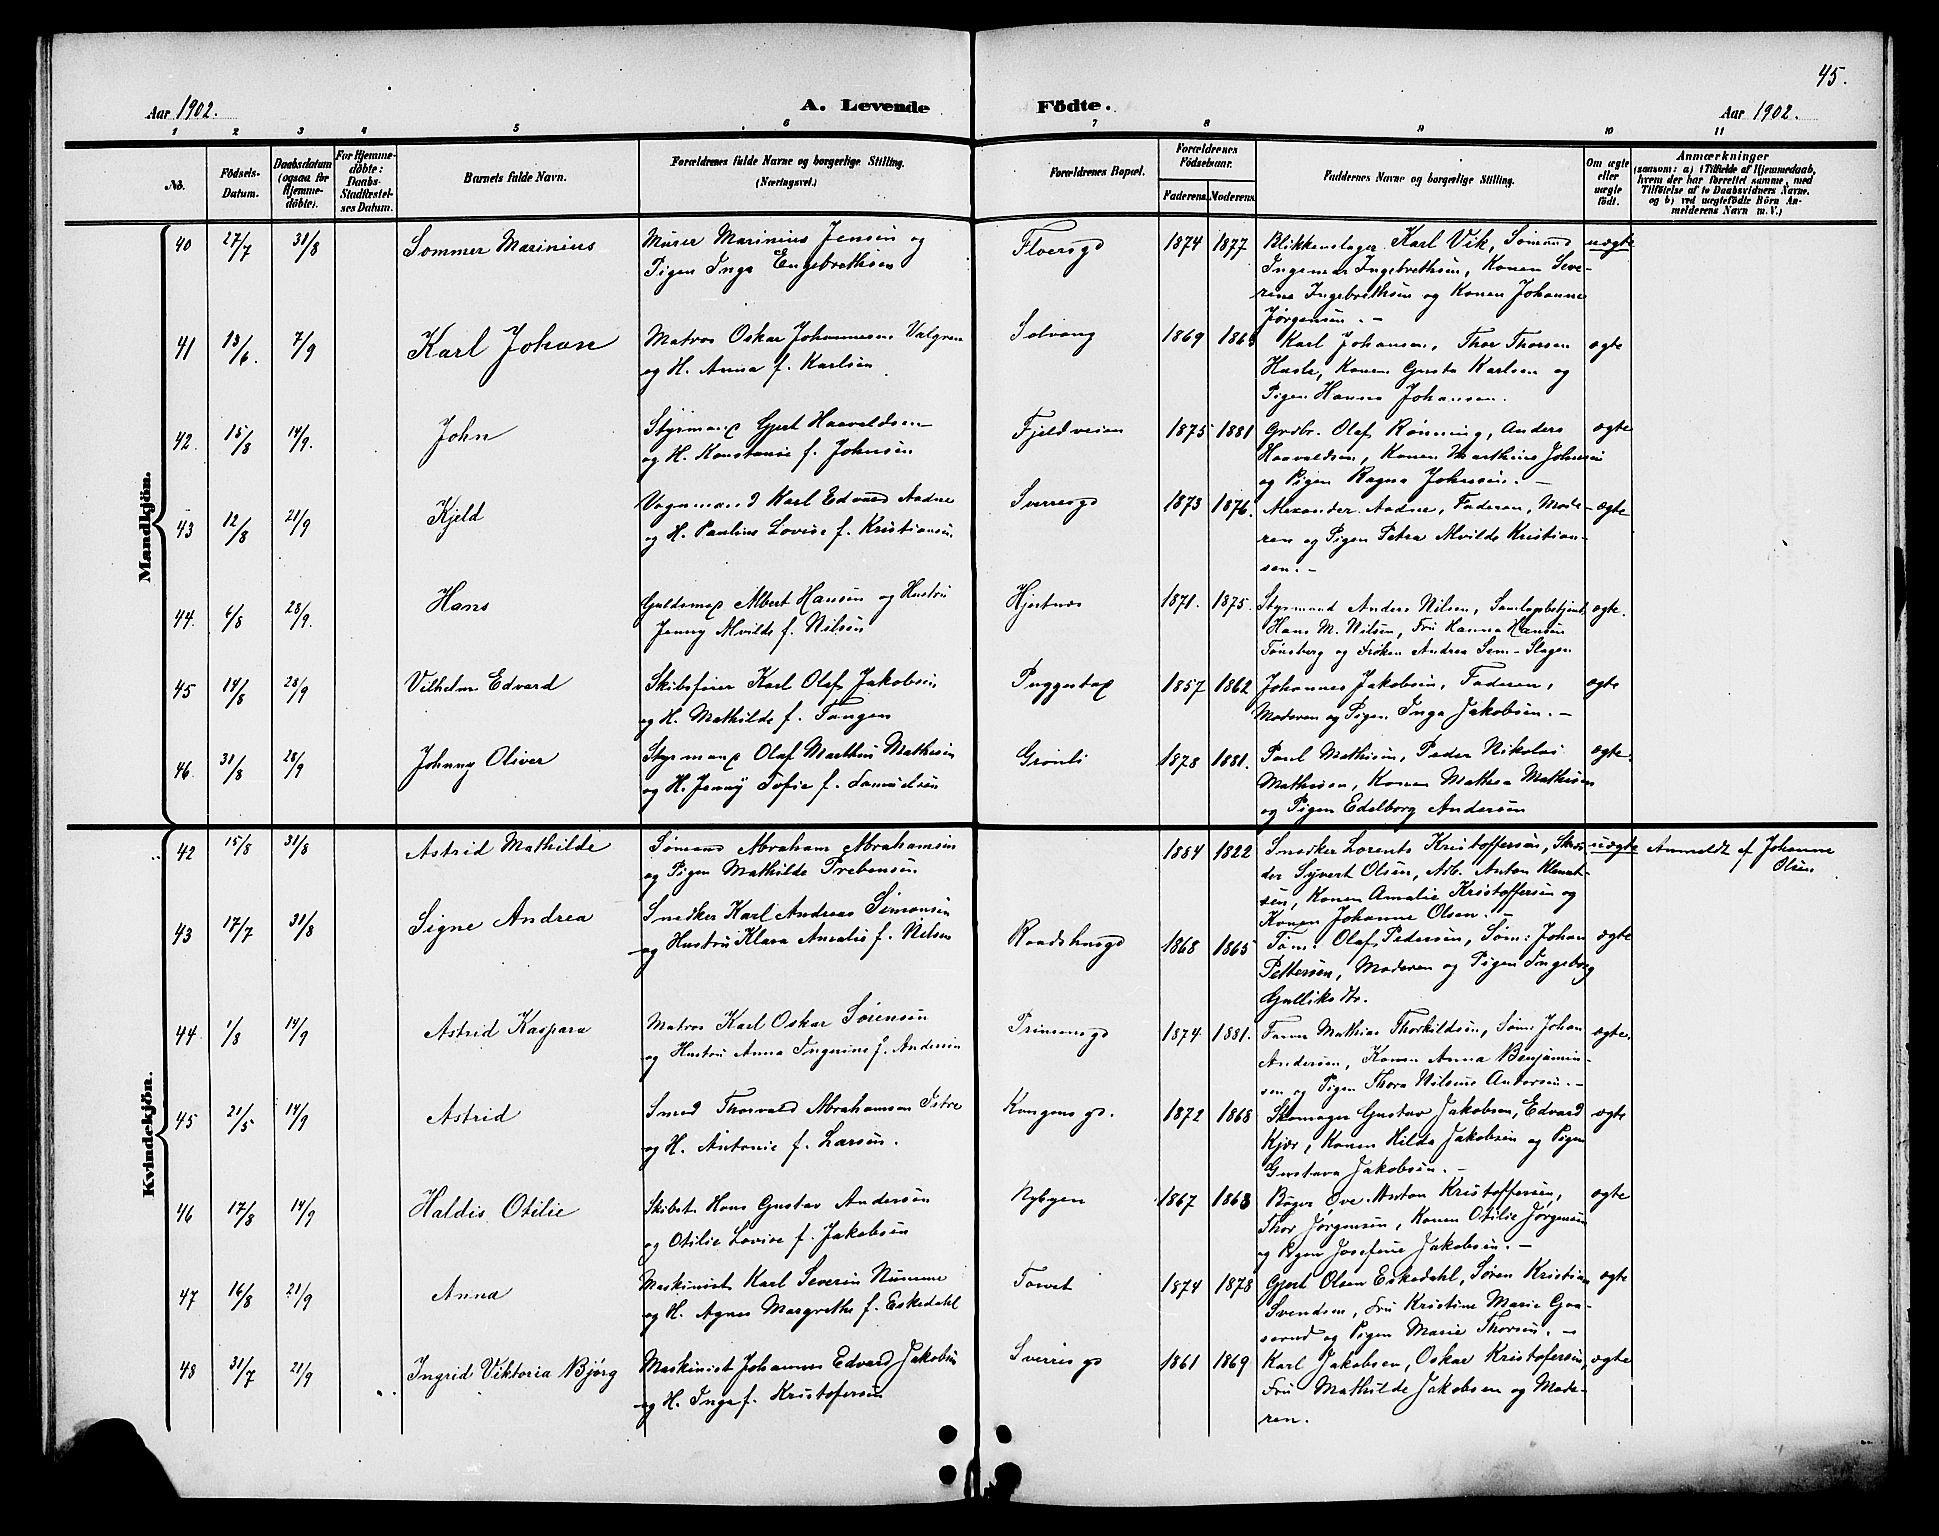 45.
Aar 1902.
A. Levende Födte.
Aar 1902.
1 2 3 4 5 6 7 8 9 10 11
No.
Födsels-
Datum.
Daabsdatum
(ogsaa for
Hjemme-
döbte).
For Hjemme-
döbte:
Daabs-
Stadfæstel-
ses Datum.
Barnets fulde Navn.
Forældrenes fulde Navne og borgerlige Stilling.
(Næringsvei.)
Forældrenes Bopæl.
Forældrenes
Födselsaar.
Faderens. Moderens.
Faddernes Navne og borgerlige Stilling.
Om ægte
eller
uægte
födt.
Anmærkninger
(saasom: a) i Tilfælde af Hjemmedaab,
hvem der har forrettet samme, med
Tilföielse af to Daabsvidners Navne,
og b) ved uægtefödte Börn An-
melderens Navn m. V.)
Mandkjön.
40 27/7 31/8 Sommer Marinius Murer Marinius Jensen og Floersgd 1874 1877 Blikkenslager Karl Vik, Sømand uægte
Pigen Inga Engebrethsen Ingemar Ingebrethsen, Konen Seve-
rine Ingebrethsen og Konen Johanne
Jørgensen. -
41 13/6. 7/9 Karl Johan Matros Oskar Johannesen Valgren Solvang 1869 Karl Johansen, Thor Thorsen ægte
og H. Anna f. Karlsen Hasle, Konen Gusta Karlsen og
Pigen Hanna Johansen.
42. 15/8 14/9. John Styrmand Gjert Haavaldsen Fjeldveien 1875 1881 Grdbr. Olaf Rønning, Anders ægte
og H. Konstanse f. Johnsen Haavaldsen, Konen Marthine Johnsen
og Pigen Ragna Johnsen. -
43 12/8 21/9 Kjeld Vognmand Karl Edvard Aadne Sverresgd 1873 1876. Alexander Aadne, Faderen, Mode- ægte
og H. Pauline Lovise f. Kristiansen. ren og Pigen Petra Alvilde Kristian-
sen. -
44. 6/8 28/9. Hans Guldsmed Albert Hansen og Hustru Hjertnes 1871. 1875. Styrmand Anders Nilsen, ægte.
Jenny Alvilde f. Nilsen Hans M. Nilsen, Fru Hanna Hansen
Tønsberg og Frøken Andrea Sem - Slagen
45 14/8 28/9 Vilhelm Edvard Skibsfører Karl Olaf Jakobsen 1857 1862 Johannes Jakobsen, Faderen, ægte
og H. Mathilde f. Tangen Moderen og Pigen Inga Jakobsen. -
46. 31/8 28/9 Johnny Oliver Styrmand Olaf Marthin Mathisen Grønli 1878 1881. Paul Mathisen, Peder Nikolai ægte.
og H. Jenny Sofie f. Samuelsen Mathisen, Konen Mathea Mathisen
og Pigen Edelborg Andersen
Kvindekjön.
42 15/8 31/8 Astrid Mathilde Sømand Abraham Abrahamsen 1884 1822 Snedker Lorents Kristoffersen, Skræd- uægte Anmeldt af Johanne
Olsen
og Pigen Mathilde Prebensen der Syvert Olsen, Arb. Anton Klemet-
sen, Konen Amalie Kristoffersen og
Konen Johanne Olsen. -
43 17/7 31/8 Signe Andrea Snedker Karl Andreas Simonsen Raadshusgd 1868 1865 Tøm. Olaf Pedersen, Søm: Johan ægte
og Hustru Klara Amalie f. Nilsen Pettersen, Moderen og Pigen Ingeborg
Gulliksdtr.
44 1/8 14/9 Astrid Kaspara Matros Karl Oskar Sørensen Prinsensgd 1874 1881. Mathias Thorkildsen, Søm. Johan ægte.
og Hustru Anna Ingvine f. Andersen Andersen, Konen Anna Benjamin-
sen og Pigen Thora Nilsine Andersen. -
45 21/5 14/9 Astrid Smed Thorvald Abrahamsen Istre Kongensgd. 1872 1868 Skomager Gustav Jakobsen, Edvard ægte
og H. Antonie f. Larsen. Kjær, Konen Hilda Jakobsen og Pigen
Gustava Jakobsen. -
46 17/8 14/9 Haldis Otilie Skibst. Hans Gustav Andersen Nybyen 1867 1868 Bøger Ove Anton Kristoffersen, ægte
og Otilie Lovise f. Jakobsen Thor Jørgensen, Konen Otilie Jørgensen
og Pigen Josefine Jakobsen. -
47 16/8 21/9 Anna Maskinist Karl Severin Numme Torvet 1874 1878 Gjert Olsen Eskedahl, Søren Kristian ægte
og H. Agnes Margrethe f. Eskedahl Svendsen, Fru Kristine Marie Gaa-
serud og Pigen Marie Thorsen. -
48 31/7 21/9 Ingrid Viktoria Bjørg Maskinist Johannes Edvard Jakobsen Sverresgd 1861 1869 Karl Jakobsen, Oskar Kristofersen, ægte
og H. Inga f. Kristofersen Fru Mathilde Jakobsen og Mode-
ren.